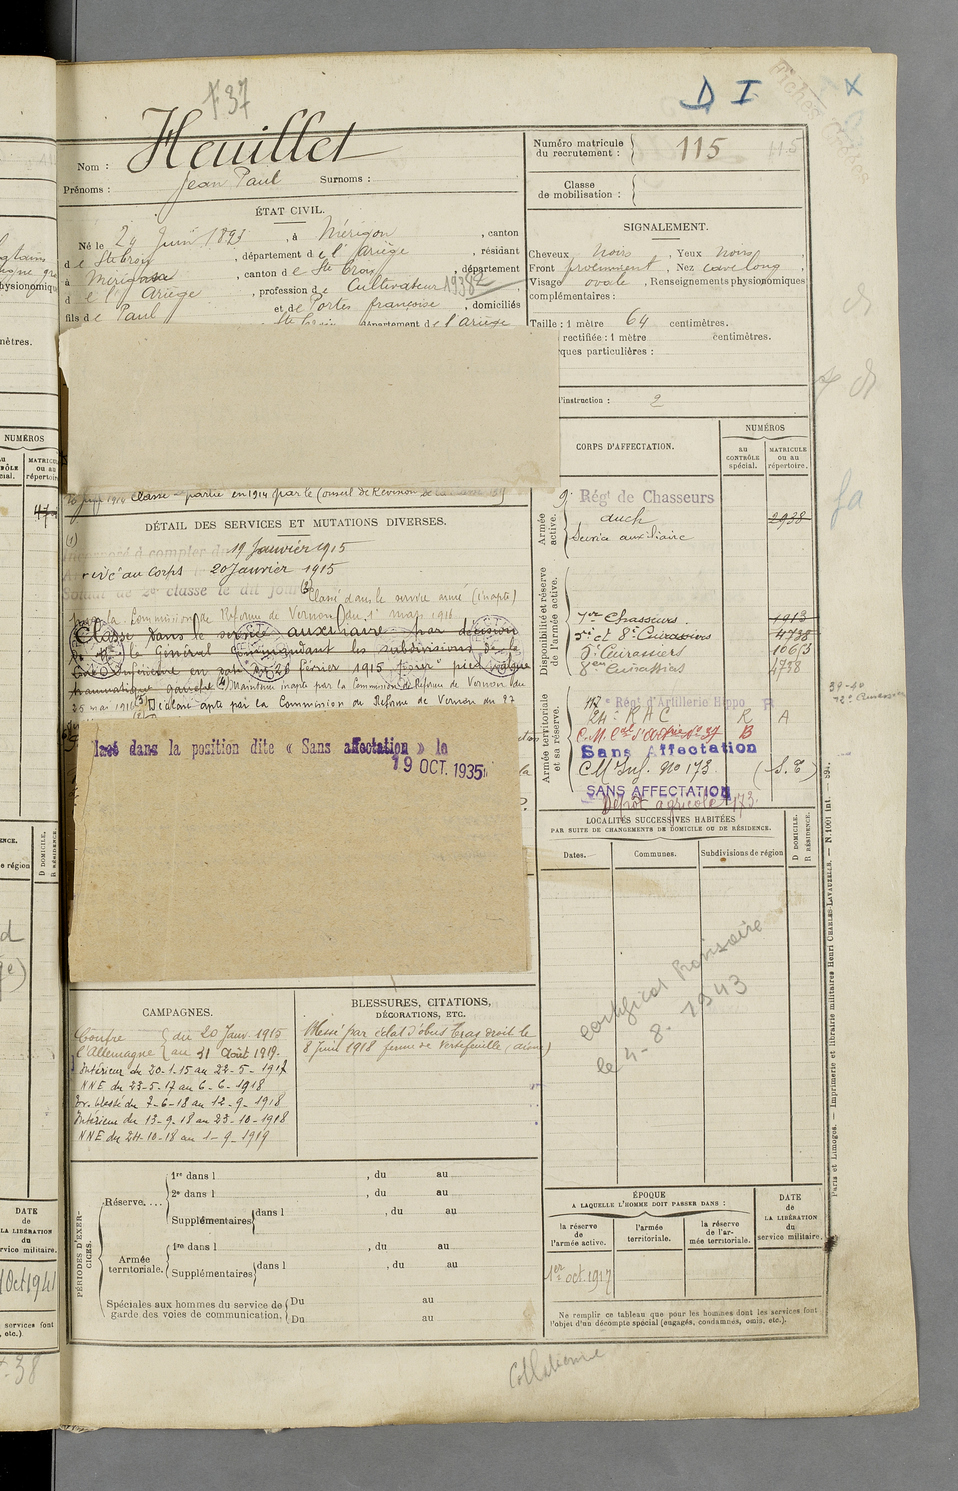 F 37
D I
X
Nom : Heuillet
Prénoms : Jean Paul Surnoms :
Numéro matricule du recrutement : 115
Classe de mobilisation :
ÉTAT CIVIL.
Né le 24 Juin 1893, à Mérigon, canton
de Ste Croix, département de l'Ariège, résidant
à Mérigon, canton de Ste Croix, département
de l'Ariège, profession de Cultivateur
fils de Paul et de Portes françoise, domiciliés
Ste Croix, département de l'Ariège
SIGNALEMENT.
Cheveux noirs, Yeux noirs,
Front proéminent, Nez cave long,
Visage ovale, Renseignements physionomiques
complémentaires :
Taille : 1 mètre 64 centimètres.
rectifiée : 1 mètre centimètres.
ques particulières :
d'instruction : 2
Classe partie en 1914 par le Conseil de Révision
DÉTAIL DES SERVICES ET MUTATIONS DIVERSES.
(1)
Incorporé à compter du 19 Janvier 1915
Arrivé au Corps 20 Janvier 1915
Soldat de 2e classe le dit jour (3) Classé dans le service armé (inapte)
par la Commission de Réforme de Vernon du 1er mars 1916
Classé dans le service auxiliaire par décision
de M. le Général Commandant les subdivisions de la
février 1915
(4) Maintenu inapte par la Commission de Réforme de Vernon du
25 mai 1916 (5) Déclaré apte par la Commission de Réforme de Vernon du 27
dans la position dite « Sans affectation » le
19 OCT. 1935
CORPS D'AFFECTATION.
NUMÉROS
AU CONTRÔLE spécial.
MATRICULE OU AU répertoire.
Armée active.
9e Rég. de Chasseurs
auch
Service auxiliaire
2938
Disponibilité et réserve de l'armée active.
1er Chasseurs 1913
5e et 8e Cuirassiers 4738
5e Cuirassiers 10653
8em Cuirassiers 4738
Armée territoriale et sa réserve.
Régt d'Artillerie Hippo
24e R A C R A
B
Sans Affectation
C M Inf. No 173 (S.T.)
SANS AFFECTATION
Dépôt agricole 173
LOCALITÉS SUCCESSIVES HABITÉES
PAR SUITE DE CHANGEMENTS DE DOMICILE OU DE RÉSIDENCE.
Dates. Communes. Subdivisions de région
D DOMICILE.
R RÉSIDENCE.
certificat Provisoire
le 4-8-1943
CAMPAGNES.
Contre l'Allemagne du 20 Janv 1915
au 31 Août 1919.
Intérieur du 20-1-15 au 22-5-1917
NNE du 23-5-17 au 6-6-1918
Ar. blessé du 7-6-18 au 12-9-1918
Intérieur du 13-9-18 au 23-10-1918
NNE du 24-10-18 au 1-9-1919
BLESSURES, CITATIONS,
DÉCORATIONS, ETC.
Blessé par éclat d'obus bras droit le
8 Juin 1918 ferme de Vertefeuille (aisne)
PÉRIODES D'EXERCICES.
Réserve....
1re dans l , du au
2e dans l , du au
Supplémentaires dans l , du au
Armée territoriale.
1re dans l , du au
Supplémentaires dans l , du au
Spéciales aux hommes du service de garde des voies de communication.
Du au
Du au
ÉPOQUE
A LAQUELLE L'HOMME DOIT PASSER DANS :
la réserve de l'armée active.
l'armée territoriale.
la réserve de l'armée territoriale.
DATE de LA LIBÉRATION du service militaire.
1er oct. 1917
Ne remplir ce tableau que pour les hommes dont les services font
l'objet d'un décompte spécial (engagés, condamnés, omis, etc.).
Paris et Limoges. — Imprimerie et librairie militaires Henri CHARLES-LAVAUZELLE. — N. 1001 int.
Collationné